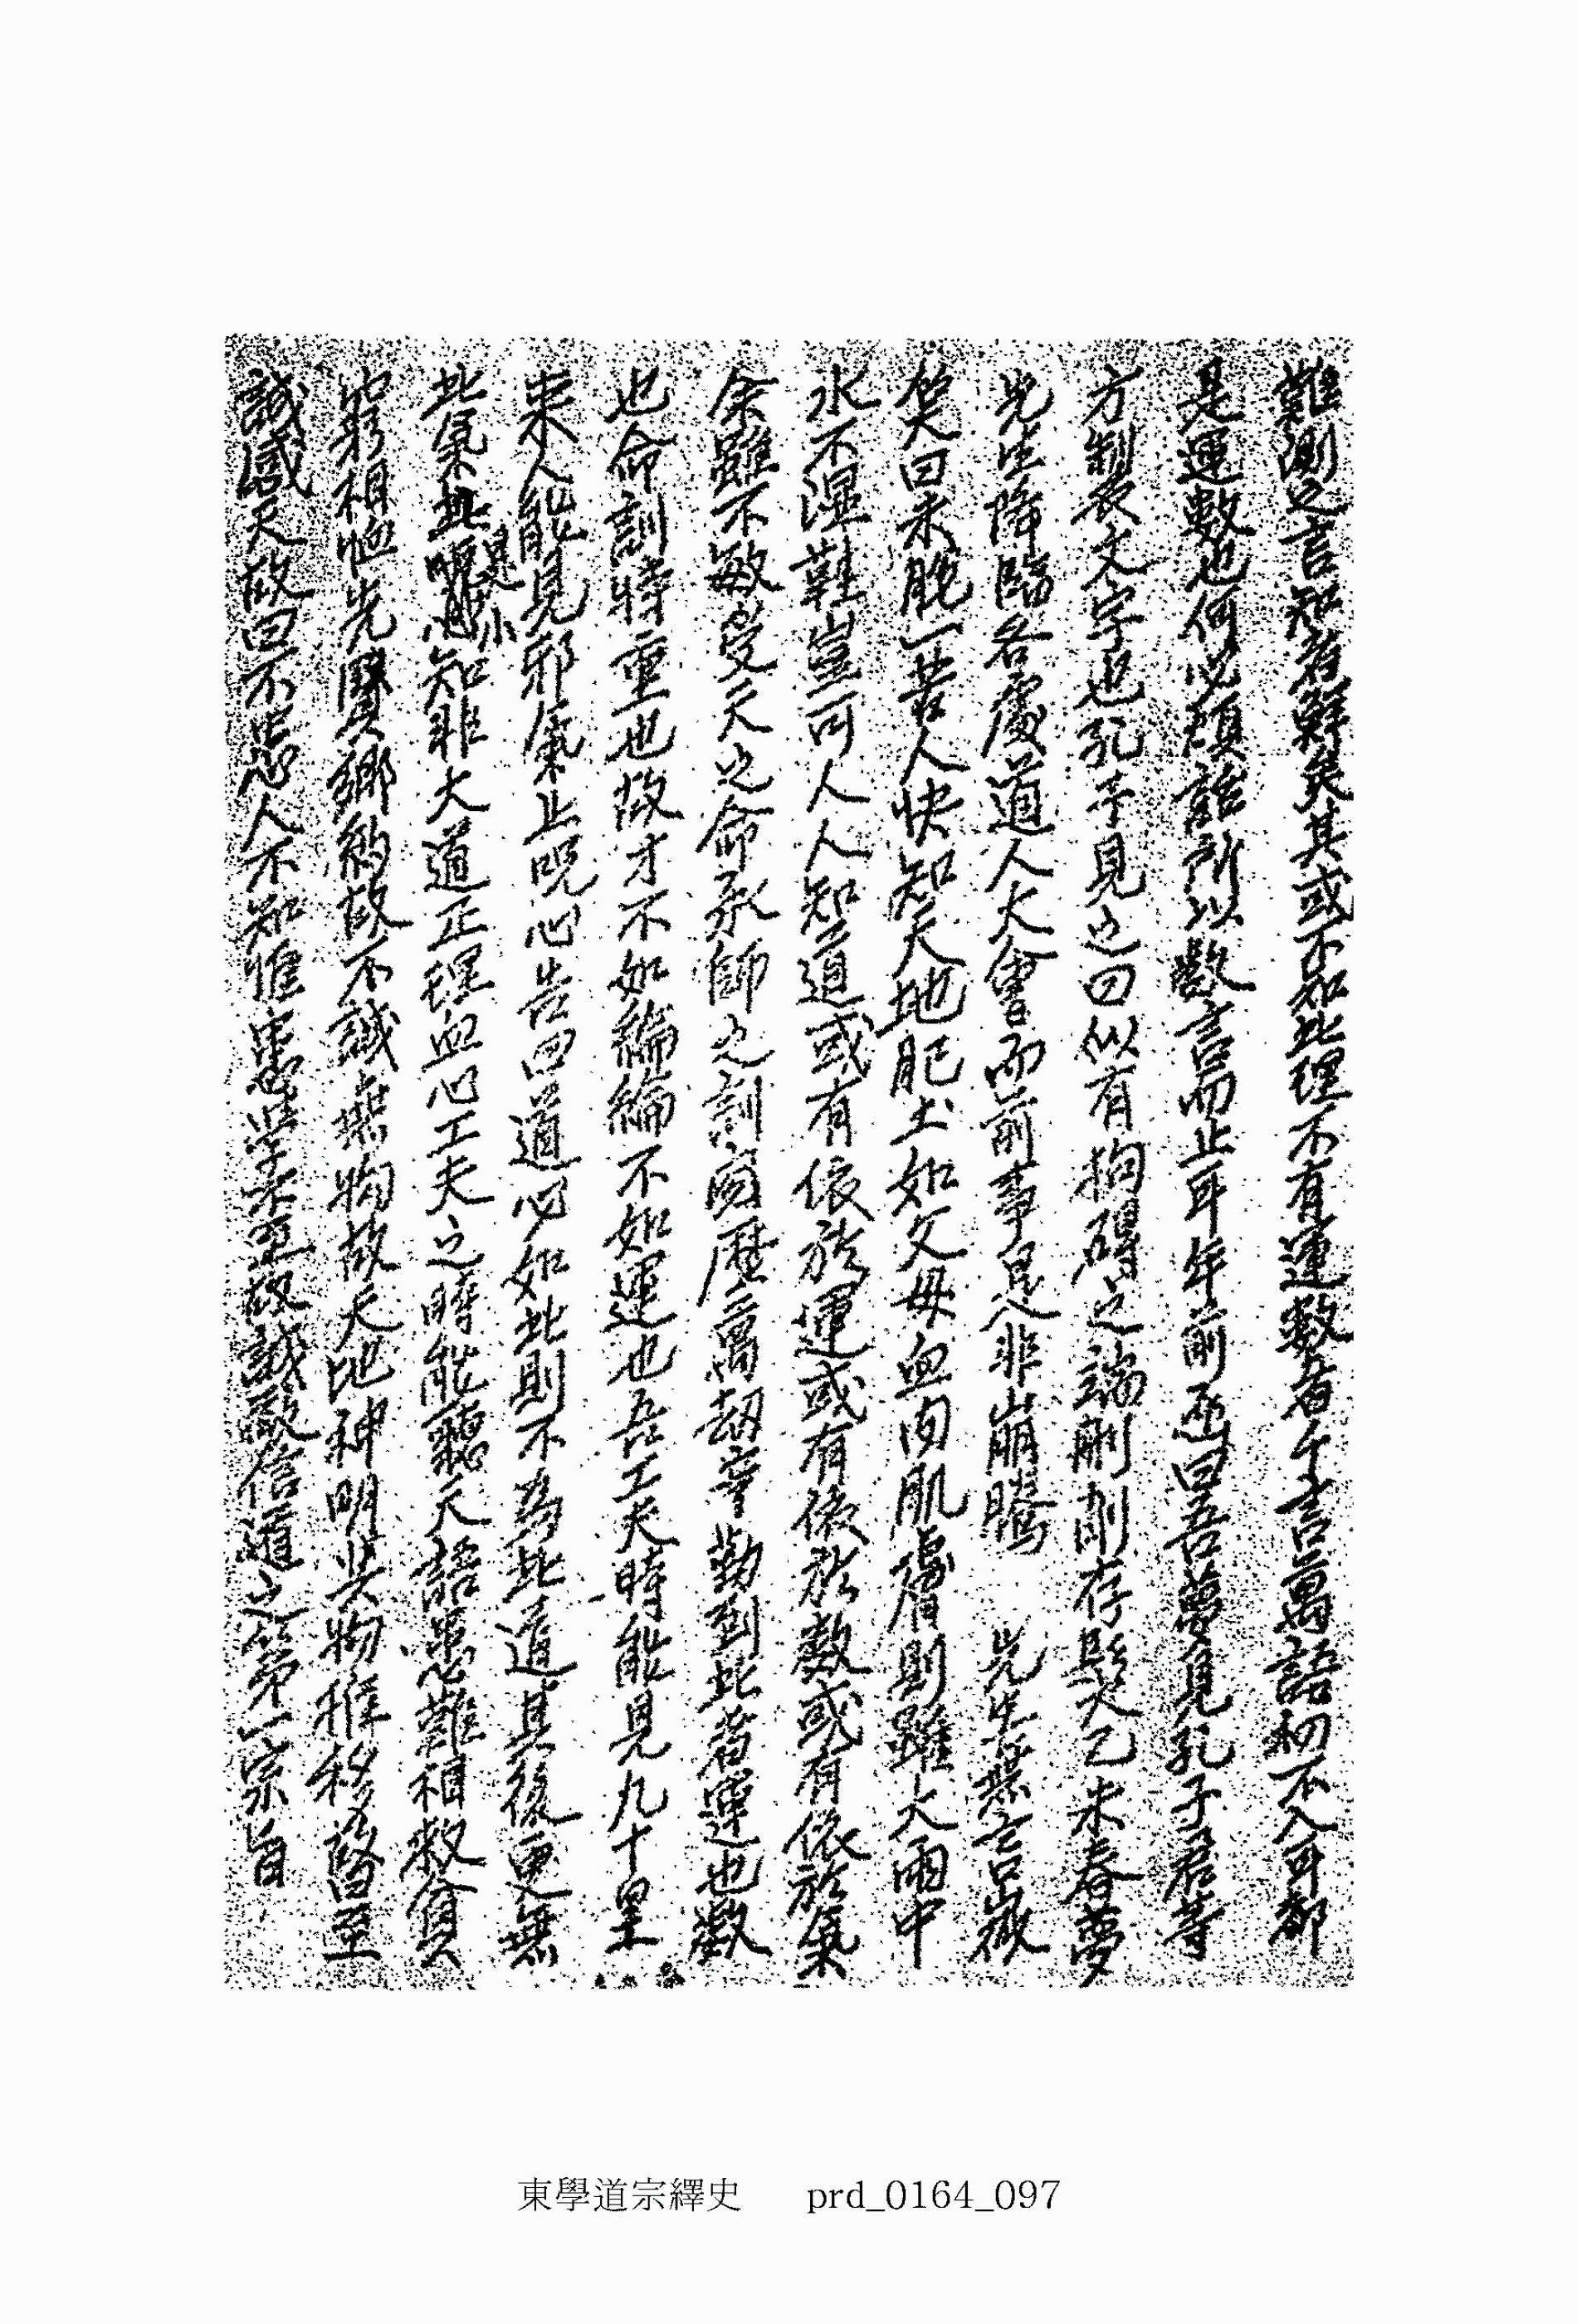 難測之言知者鮮矣其或不知此理不有運數者千言萬語初不入耳都
是運數也何必煩詰所以數言而止耳年前丞曰吾夢見孔子君等
方製衣文字也孔子見之曰似有拘碍之端刪削存髮乙未春夢
先生降臨各處道人大會而前事是非崩騰 先生無言微
笑曰未脫一苦人快知天地肥土如父母血肉肌膚則雖大雨中
水不濕鞋豈可人人知道或有依於運或有依於數或有依於氣
余雖不敏受天之命承師之訓窮歷萬劫辛勤到此者運也數
也命訓特重也故才不如綸綸不如運也吾工夫時能見九十里
來人能見邪氣止呪心告曰道必如此則不爲此道其後更無
此氣此睍是小心知非大道正理血心工夫之時能聽天語患難相救貧
窮相恤先賢鄕約故不誠無物故天地神明共物推移答曰至
誠感天故曰不患人不知惟患學不至故誠敬信道之第一宗旨
東學道宗繹史 prd_0164_097